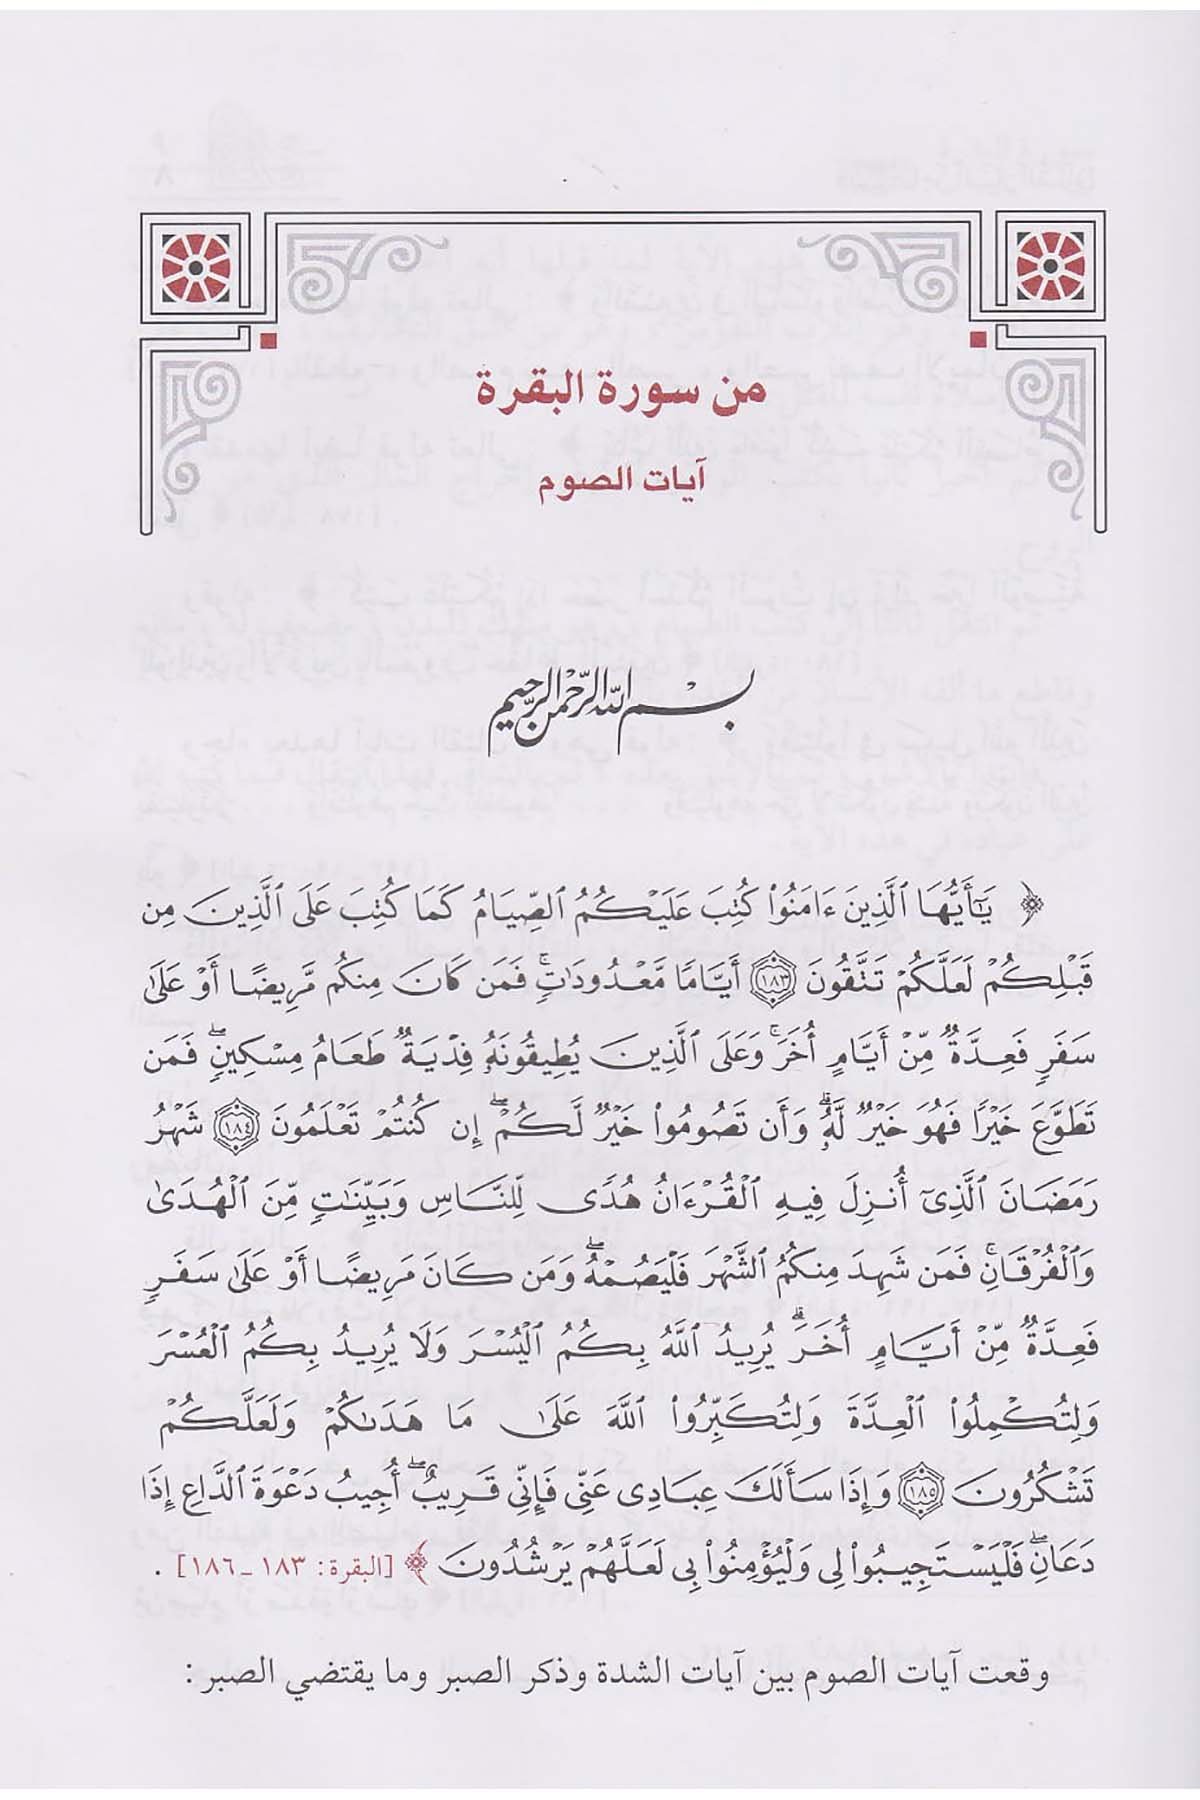 من سورة البقرة
آيات الصوم
بسم الله الرحمن الرحيم
﴿ يَٰٓأَيُّهَا ٱلَّذِينَ ءَامَنُوا۟ كُتِبَ عَلَيْكُمُ ٱلصِّيَامُ كَمَا كُتِبَ عَلَى ٱلَّذِينَ مِن
قَبْلِكُمْ لَعَلَّكُمْ تَتَّقُونَ ١٨٣ أَيَّامًا مَّعْدُودَٰتٍۚ فَمَن كَانَ مِنكُم مَّرِيضًا أَوْ عَلَىٰ
سَفَرٍ فَعِدَّةٌ مِّنْ أَيَّامٍ أُخَرَۚ وَعَلَى ٱلَّذِينَ يُطِيقُونَهُۥ فِدْيَةٌ طَعَامُ مِسْكِينٍۖ فَمَن
تَطَوَّعَ خَيْرًا فَهُوَ خَيْرٌ لَّهُۥۚ وَأَن تَصُومُوا۟ خَيْرٌ لَّكُمْۖ إِن كُنتُمْ تَعْلَمُونَ ١٨٤ شَهْرُ
رَمَضَانَ ٱلَّذِىٓ أُنزِلَ فِيهِ ٱلْقُرْءَانُ هُدًى لِّلنَّاسِ وَبَيِّنَٰتٍ مِّنَ ٱلْهُدَىٰ
وَٱلْفُرْقَانِۚ فَمَن شَهِدَ مِنكُمُ ٱلشَّهْرَ فَلْيَصُمْهُۖ وَمَن كَانَ مَرِيضًا أَوْ عَلَىٰ سَفَرٍ
فَعِدَّةٌ مِّنْ أَيَّامٍ أُخَرَۗ يُرِيدُ ٱللَّهُ بِكُمُ ٱلْيُسْرَ وَلَا يُرِيدُ بِكُمُ ٱلْعُسْرَ
وَلِتُكْمِلُوا۟ ٱلْعِدَّةَ وَلِتُكَبِّرُوا۟ ٱللَّهَ عَلَىٰ مَا هَدَىٰكُمْ وَلَعَلَّكُمْ
تَشْكُرُونَ ١٨٥ وَإِذَا سَأَلَكَ عِبَادِى عَنِّى فَإِنِّى قَرِيبٌۖ أُجِيبُ دَعْوَةَ ٱلدَّاعِ إِذَا
دَعَانِۖ فَلْيَسْتَجِيبُوا۟ لِى وَلْيُؤْمِنُوا۟ بِى لَعَلَّهُمْ يَرْشُدُونَ ﴾ [البقرة: ١٨٣ - ١٨٦] .
وقعت آيات الصوم بين آيات الشدة وذكر الصبر وما يقتضي الصبر: